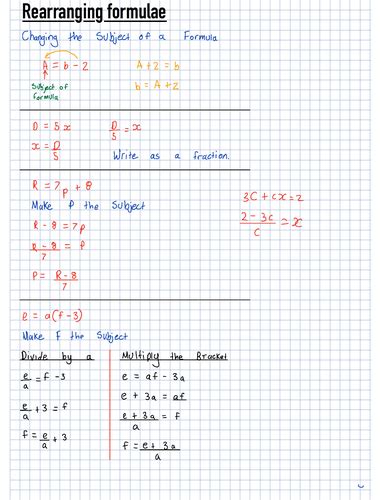 Rearranging formulae
Changing the Subject of a Formula
A = b - 2
A + 2 = b
Subject of
formula
b = A + 2
D = 5x
D/5 = x
x = D/5
Write as a fraction.
R = 7p + 8
Make P the Subject
R - 8 = 7p
R - 8/7 = P
P = R - 8/7
3C + cx = 2
2 - 3c/c = x
e = a(f - 3)
Make F the Subject
Divide by a
e/a = f - 3
e/a + 3 = f
f = e/a + 3
Multiply the Bracket
e = af - 3a
e + 3a = af
e + 3a/a = f
f = e + 3a/a